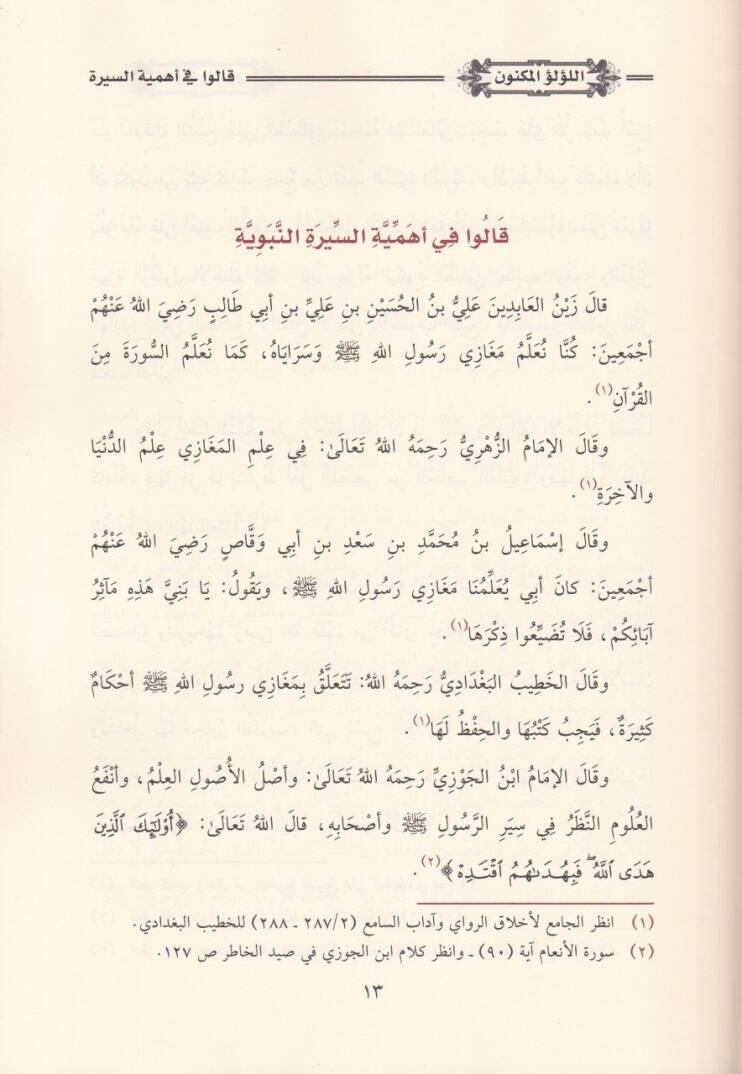 اللؤلؤ المكنون
قالوا في أهمية السيرة
قَالُوا فِي أهَمِّيَّةِ السِّيرَةِ النَّبَوِيَّةِ
قالَ زَيْنُ العَابِدِينَ عَلِيُّ بنُ الحُسَيْنِ بنِ عَلِيِّ بنِ أبِي طَالِبٍ رَضِيَ اللهُ عَنْهُمْ
أجْمَعِينَ: كُنَّا نُعَلَّمُ مَغَازِي رَسُولِ اللهِ ﷺ وَسَرَايَاهُ، كَمَا نُعَلَّمُ السُّورَةَ مِنَ
القُرْآنِ(١).
وقَالَ الإمَامُ الزُّهْرِيُّ رَحِمَهُ اللهُ تَعَالَىٰ: فِي عِلْمِ المَغَازِي عِلْمُ الدُّنْيَا
والآخِرَةِ(١).
وقَالَ إسْمَاعِيلُ بنُ مُحَمَّدِ بنِ سَعْدِ بنِ أبِي وَقَّاصٍ رَضِيَ اللهُ عَنْهُمْ
أجْمَعِينَ: كانَ أبِي يُعَلِّمُنَا مَغَازِي رَسُولِ اللهِ ﷺ، ويَقُولُ: يَا بَنِيَّ هَذِهِ مَآثِرُ
آبَائِكُمْ، فَلَا تُضَيِّعُوا ذِكْرَهَا(١).
وقَالَ الخَطِيبُ البَغْدَادِيُّ رَحِمَهُ اللهُ: تَتَعَلَّقُ بِمَغَازِي رسُولِ اللهِ ﷺ أحْكَامٌ
كَثِيرَةٌ، فَيَجِبُ كَتْبُهَا والحِفْظُ لَهَا(١).
وقَالَ الإمَامُ ابْنُ الجَوْزِيِّ رَحِمَهُ اللهُ تَعَالَىٰ: وأصْلُ الأُصُولِ العِلْمُ، وأنْفَعُ
العُلُومِ النَّظَرُ فِي سِيَرِ الرَّسُولِ ﷺ وأصْحَابِهِ، قالَ اللهُ تَعَالَىٰ: ﴿أُوْلَٰٓئِكَ ٱلَّذِينَ
هَدَى ٱللَّهُۖ فَبِهُدَىٰهُمُ ٱقْتَدِهْ﴾(٢).
(١) انظر الجامع لأخلاق الرواي وآداب السامع (٢/٢٨٧ ـ ٢٨٨) للخطيب البغدادي.
(٢) سورة الأنعام آية (٩٠) ـ وانظر كلام ابن الجوزي في صيد الخاطر ص ١٢٧.
١٣